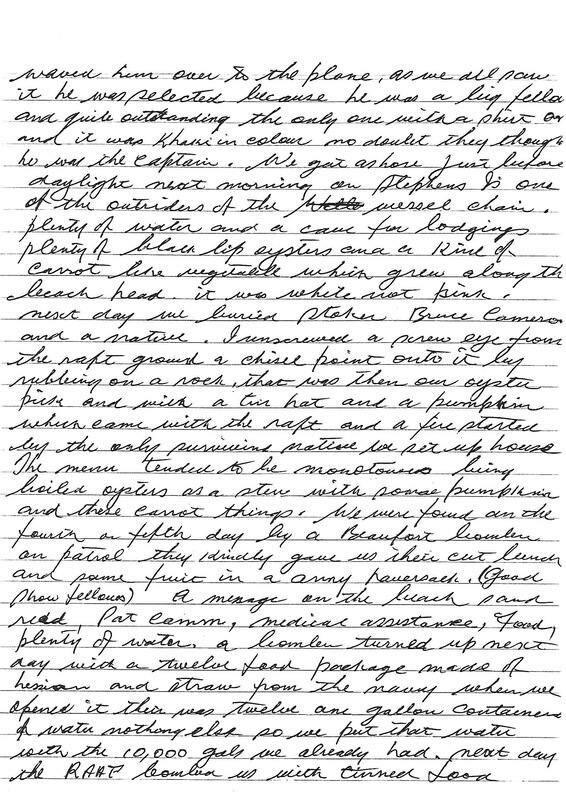 waved him over to the plane, as we all saw
it he was selected because he was a big fella
and quite outstanding the only one with a shirt on
and it was Khaki in colour no doubt they though
he was the Captain. We got ashore just before
daylight next morning on Stephens Is one
of the outriders of the wessel chain.
plenty of water and a cave for lodgings
plenty of black lip oysters and a kind of
carrot like vegetable which grew along th
beach head. it was white not pink.
next day we buried Stoker Bruce Cameron
and a native. I unscrewed a screw eye from
the raft ground a chisel point onto it by
rubbing on a rock, that was then our oyster
pick and with a tin hat and a pumpkin
which came with the raft and a fire started
by the only surviving native we set up house
The menu tended to be monotonous being
boiled oysters as a stew with some pumpkin
and these carrot things. We were found on the
fourth or fifth day by a Beaufort bomber
on patrol they kindly gave us their cut lunch
and some fruit in a army haversack. (Good
show fellows) A message on the beach sand
read, Pat Camm, medical assistance, Food,
plenty of water. a bomber turned up next
day with a twelve food package made of
hessian and straw from the navy when we
opened it there was twelve one gallon containers
of water nothing else so we put that water
with the 10,000 gals we already had. next day
the RAAF bombed us with tinned food